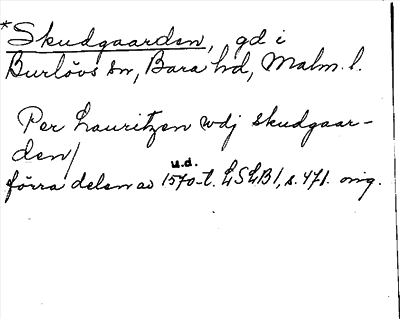 *Skudgaarden, gd i
Burlövs sn, Bara hd, Malm. l.
Per Lauritzen wdj Skudgaar-
den/
u.d.
förra delen av 1570-t. LSLB1, s. 471. orig.